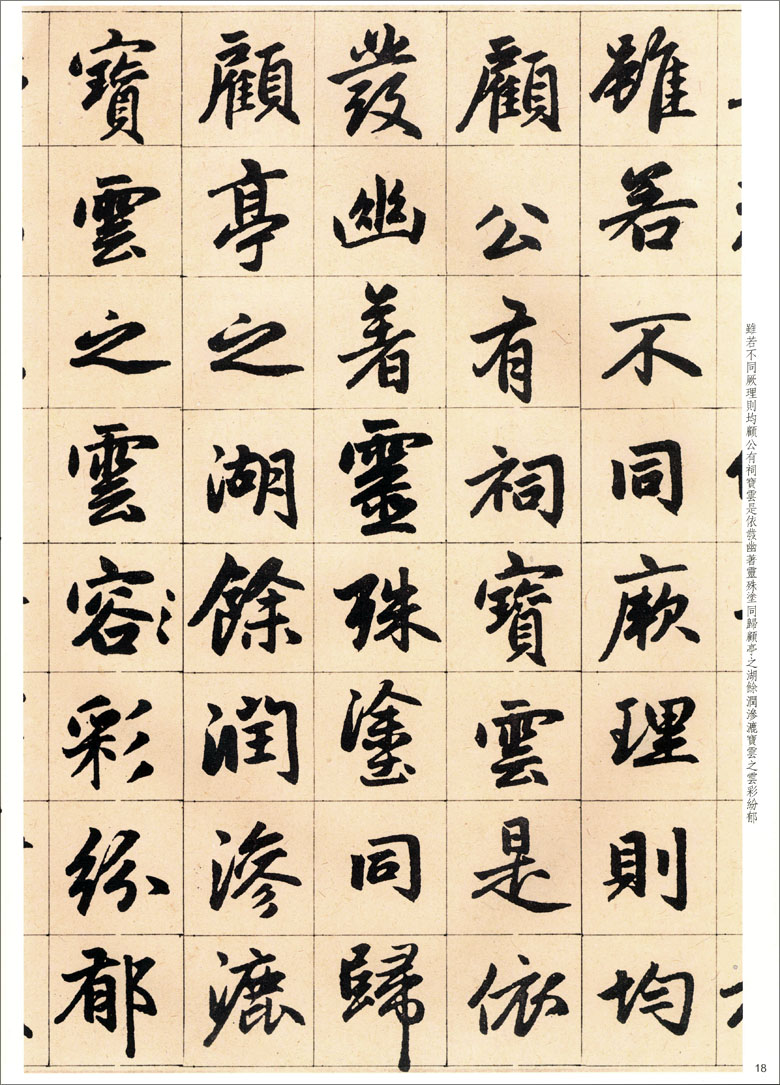 雖若不同厥理則均
顧公有祠寶雲是依
發幽著靈殊塗同歸
顧亭之湖餘潤滲漉
寶雲之雲容彩紛郁
雖若不同厥理則均顧公有祠寶雲是依發幽著靈殊塗同歸顧亭之湖餘潤滲漉寶雲之雲彩紛郁
18